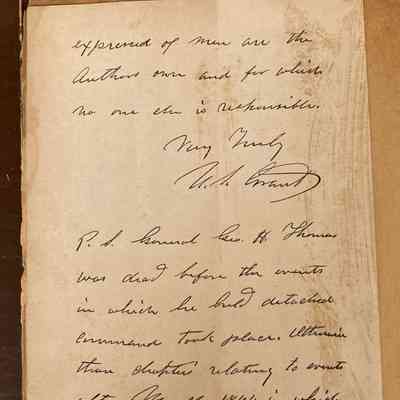 expressed of men are the
Authors own and for which
no one else is responsible.
Very Truly
U. S. Grant
P. S. General Geo. H. Thomas
was dead before the events
in which he held detached
command took place. Otherwise
than chapters relating to events
in which